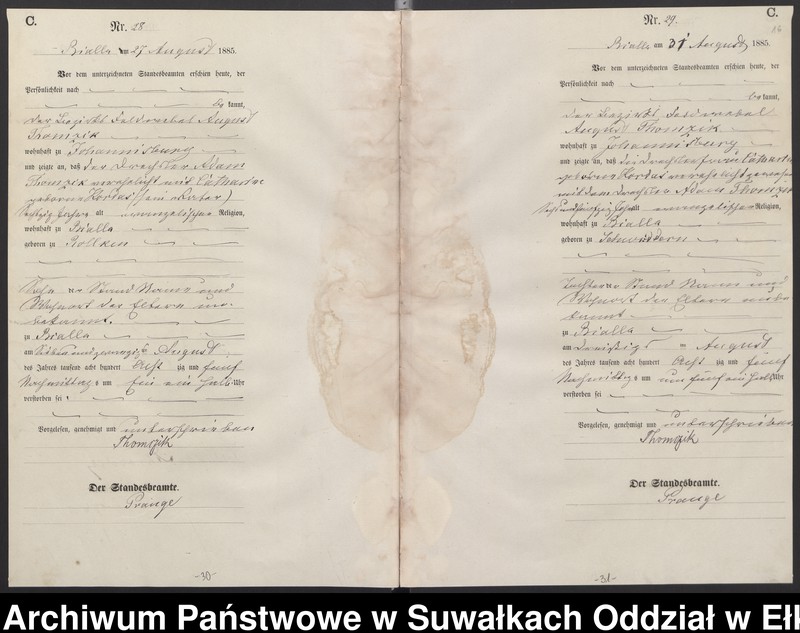 C.
Nr. 28
Bialla am 27 August 1885.
Vor dem unterzeichneten Standesbeamten erschien heute, der
Persönlichkeit nach
be kannt,
der Bezirks Feldwebel August
Thomzik
wohnhaft zu Johannisburg
und zeigte an, daß der Drechsler Adam
Thomzik verehelicht mit Catharine
geborne Kordas (sein Vater)
sechzig Jahre alt evangelischer Religion,
wohnhaft zu Bialla
geboren zu
Sohn der Stand Namen und
Wohnort der Eltern un-
bekannt.
zu Bialla
am Siebenundzwanzig August
des Jahres tausend acht hundert Acht zig und fünf
Nachmittags um ein halb Uhr
verstorben sei
Vorgelesen, genehmigt und unterschrieben
Thomzik
Der Standesbeamte.
Prange
-30-
C.
Nr. 29.
Bialla am 31 August 1885.
Vor dem unterzeichneten Standesbeamten erschien heute, der
Persönlichkeit nach
be kannt,
der Bezirks Feldwebel
August Thomzik
wohnhaft zu Johannisburg
und zeigte an, daß die Drechslerfrau Catharine
geborne Kordas verehelicht gewesen
mit dem Drechsler Adam Thomzik
Jahre alt evangelischer Religion,
wohnhaft zu Bialla
geboren zu Schwiddern
Tochter der Stand Namen und
Wohnort der Eltern unbe-
kannt
zu Bialla
am Dreißigs ten August
des Jahres tausend acht hundert Acht zig und fünf
Nachmittags um um fünf ein halb Uhr
verstorben sei
Vorgelesen, genehmigt und unterschrieben
Thomzik
Der Standesbeamte.
Prange
-31-
Archiwum Państwowe w Suwałkach Oddział w Ełk